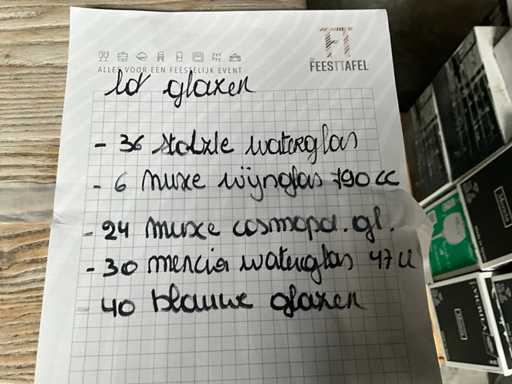 FT
DE FEESTTAFEL
ALLES VOOR EEN FEESTELIJK EVENT
glazen
- 36 stolzle waterglas
- 6 muse wijnglas 790 cc
- 24 muse cosmopol. gl.
- 30 mencia waterglas 47 cl
- 40 blauwe glazen